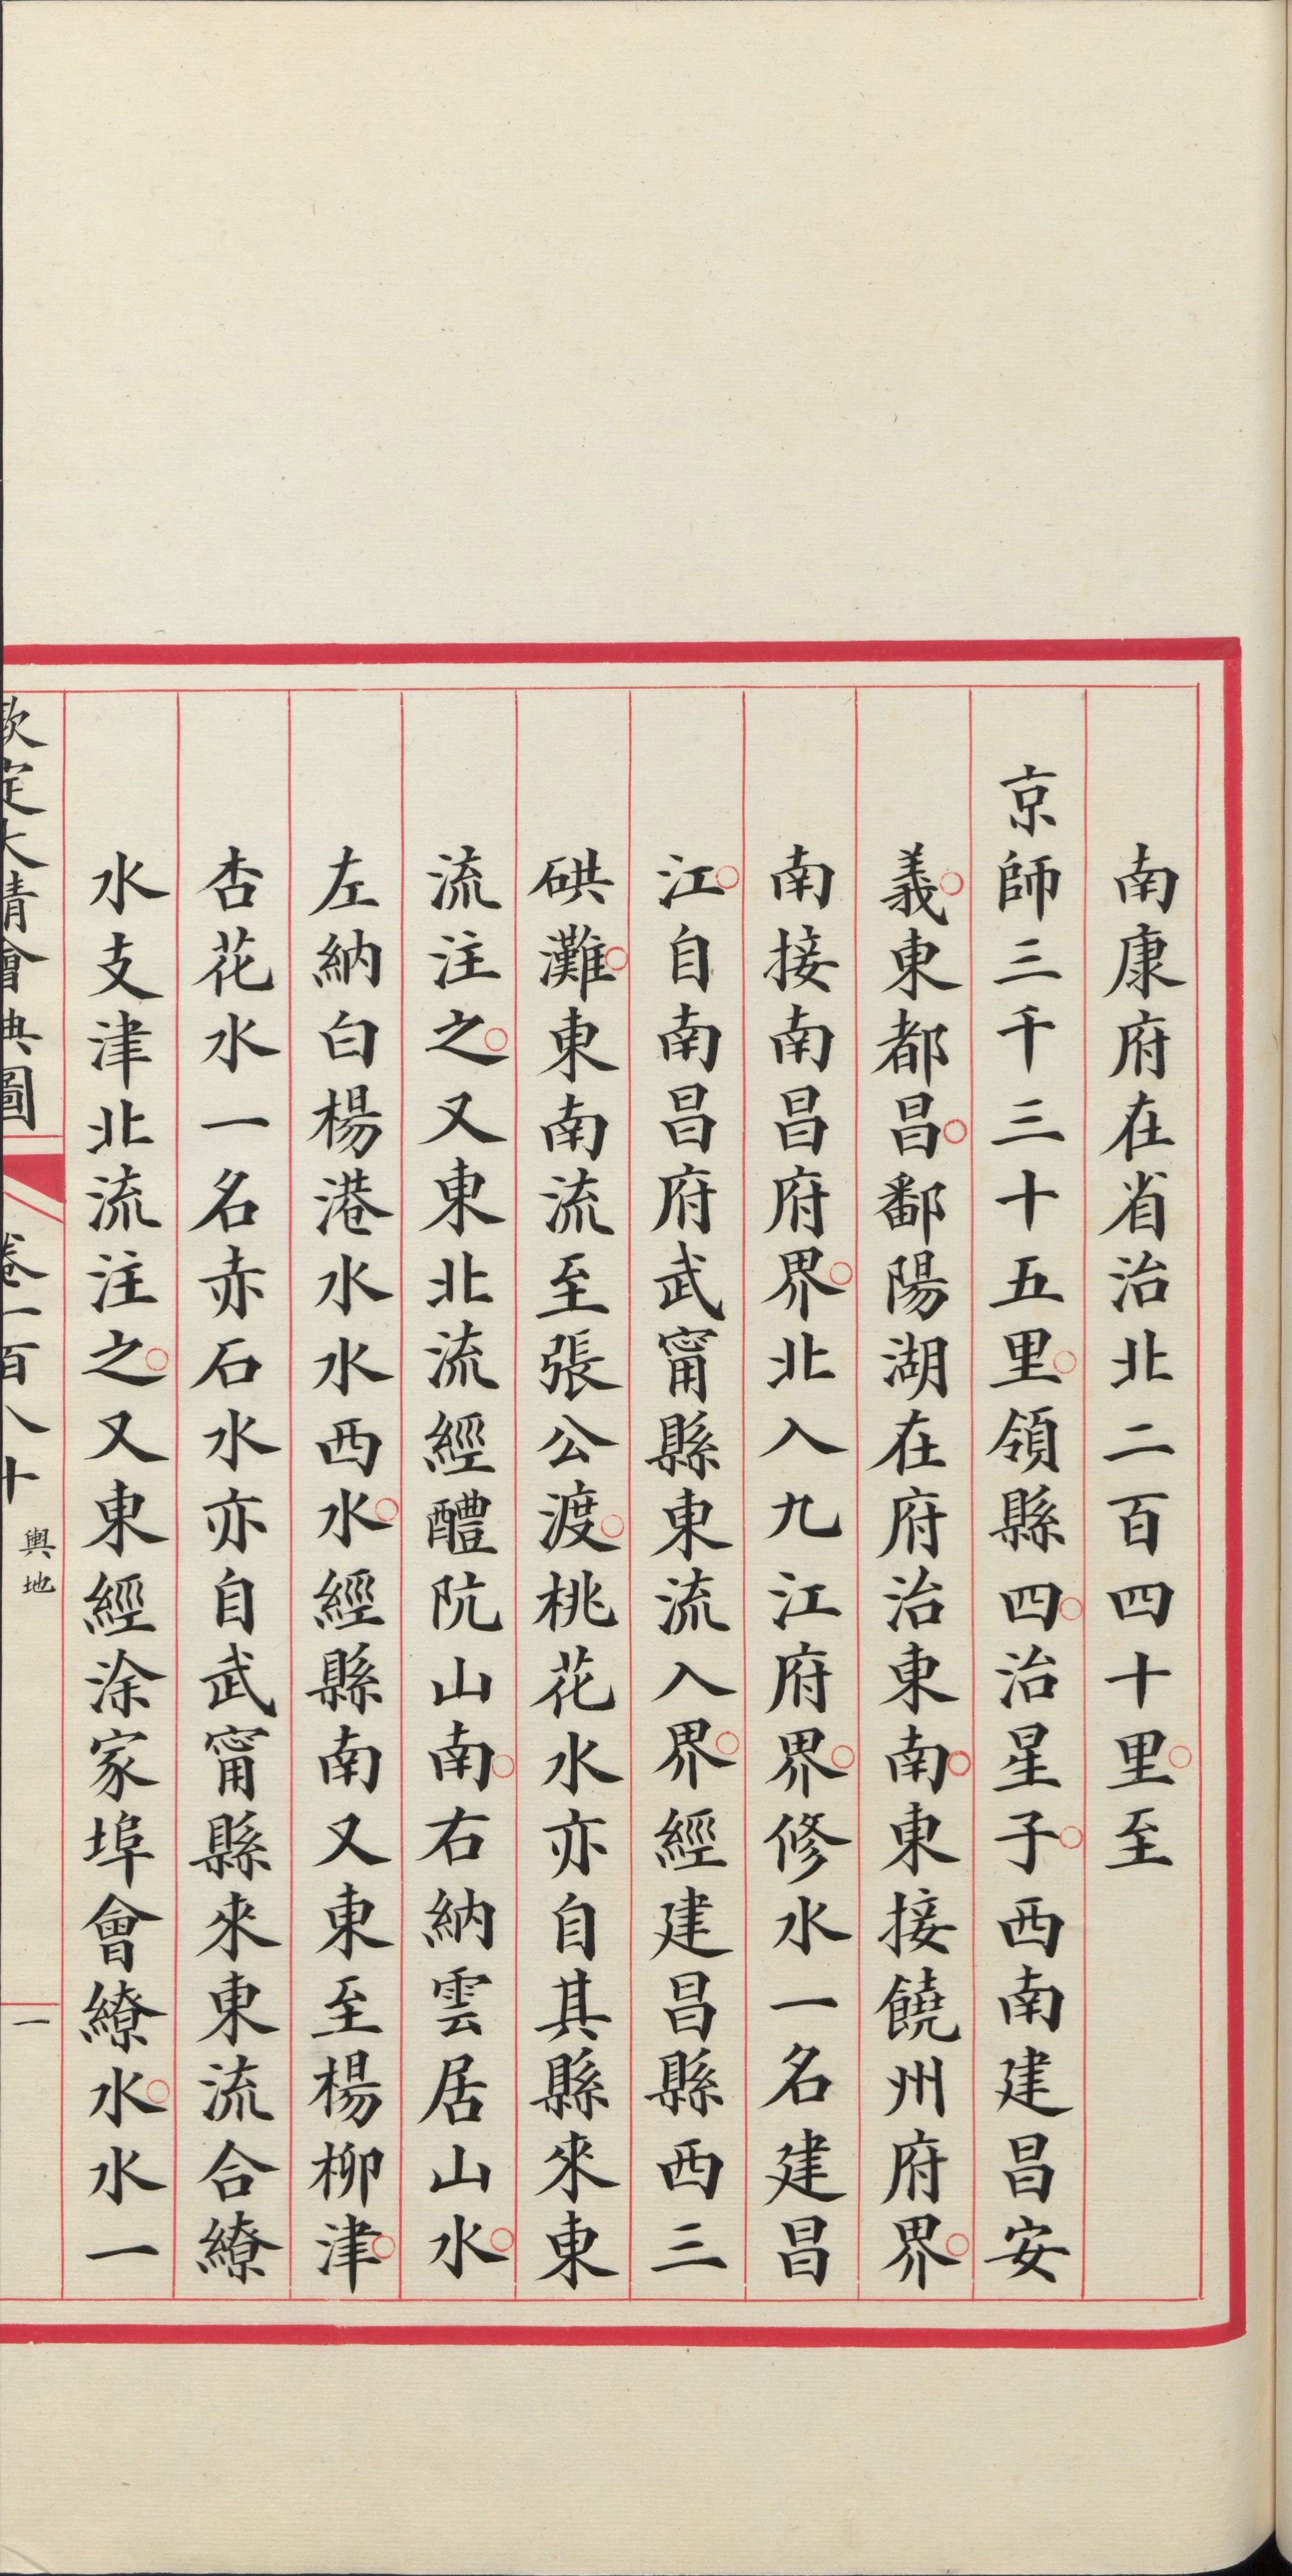 南康府在省治北二百四十里○至
京師三千三十五里○領縣四○治星子○西南建昌安
義○東都昌○鄱陽湖在府治東南○東接饒州府界○
南接南昌府界○北入九江府界○修水一名建昌
江○自南昌府武甯縣東流入界○經建昌縣西三
硔灘○東南流至張公渡○桃花水亦自其縣來東
流注之○又東北流經醴阬山南○右納雲居山水○
左納白楊港水水西水○經縣南又東至楊柳津○
杏花水一名赤石水亦自武甯縣來東流合繚
水支津北流注之○又東經涂家埠會繚水○水一
欽定大清會典圖
卷一百八十
輿地
一